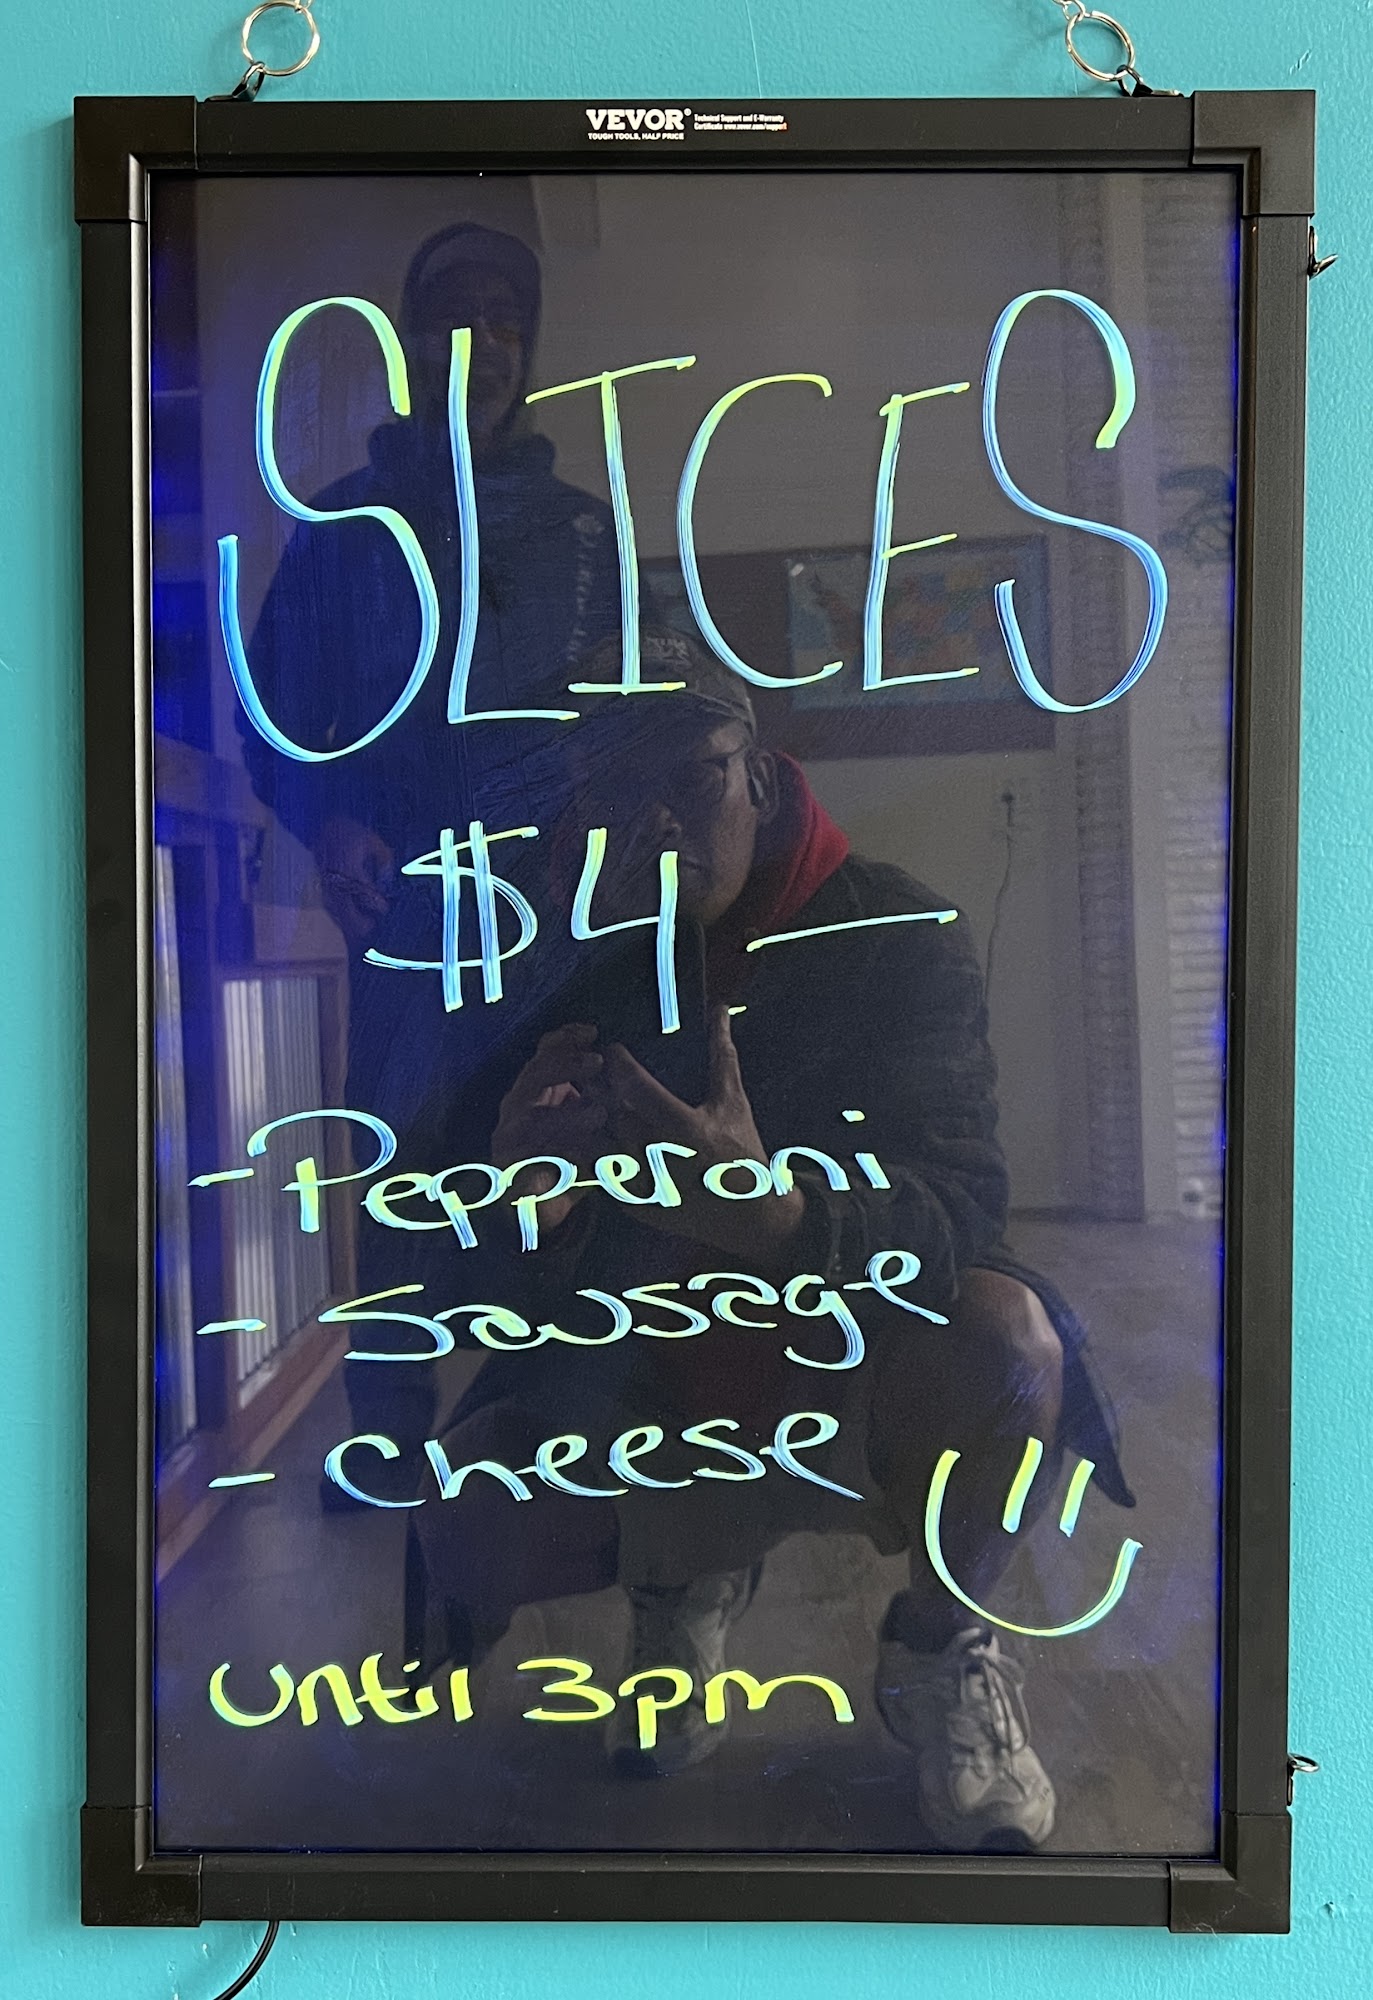 VEVOR®
TOUGH TOOLS, HALF PRICE
Technical Support and E-Warranty
Certificate www.vevor.com/support
SLICES
$4.—
- Pepperoni
- Sausage
- cheese
until 3pm